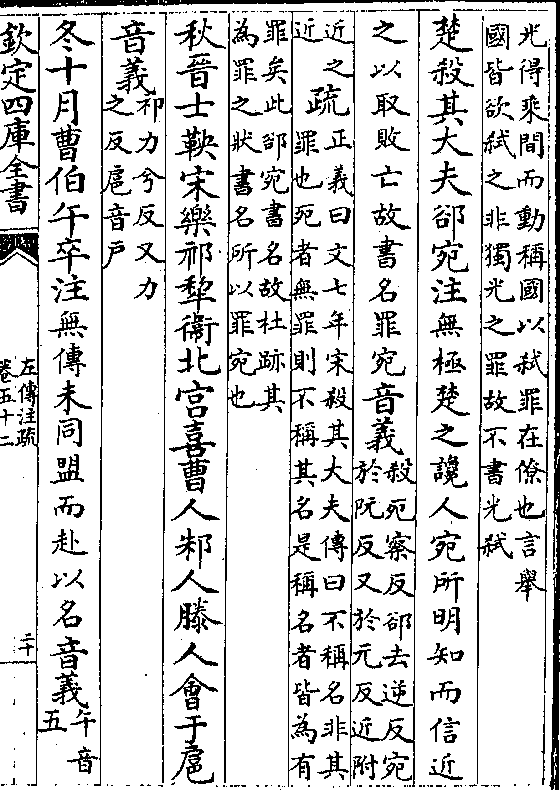 光得乘間而動稱國以弒罪在僚也言舉
國皆欲弒之非獨光之罪故不書光弒
楚殺其大夫郤宛注無極楚之讒人宛所明知而信近
之以取敗亡故書名罪宛音義
殺宛察反郤去逆反宛
於阮反又於元反近附
近之
近
疏
正義曰文七年宋殺其大夫傳曰不稱名非其
罪也死者無罪則不稱其名是稱名者皆為有
罪矣此郤宛書名故杜跡其
為罪之狀書名所以罪宛也
秋晉士鞅宋樂祁犂衞北宮喜曹人邾人滕人會于扈
音義
祁力兮反又力
之反扈音戶
冬十月曹伯午卒注無傳未同盟而赴以名音義
午音
五
欽定四庫全書
左傳注疏
卷五十二
二十